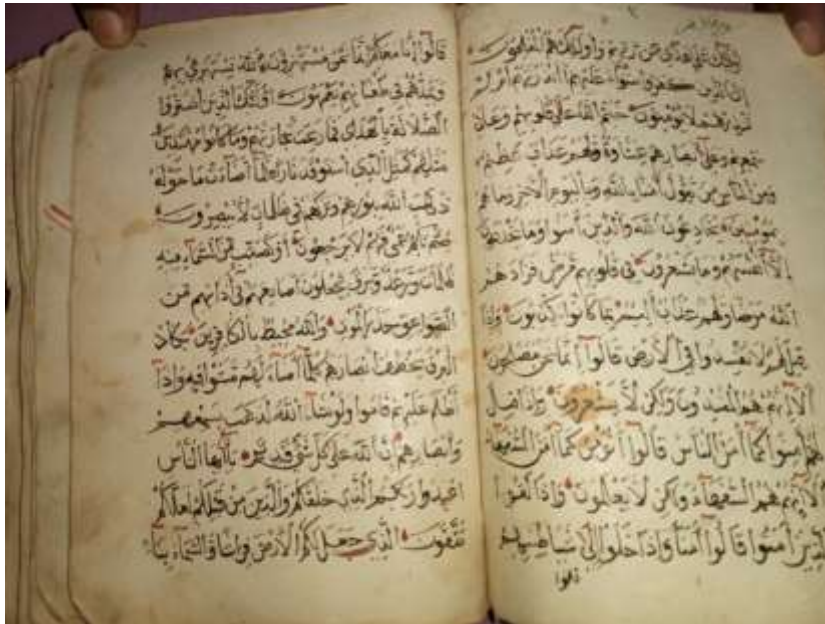 اولئك على هدى من ربهم واولئك هم المفلحون
ان الذين كفروا سواء عليهم ءانذرتهم ام لم
تنذرهم لا يؤمنون ختم الله على قلوبهم وعلى
سمعهم وعلى ابصارهم غشاوة ولهم عذاب عظيم
ومن الناس من يقول آمنا بالله وباليوم الآخر وما هم
بمؤمنين يخادعون الله والذين آمنوا وما يخدعون
الا انفسهم وما يشعرون في قلوبهم مرض فزادهم
الله مرضا ولهم عذاب اليم بما كانوا يكذبون واذا
قيل لهم لا تفسدوا في الارض قالوا انما نحن مصلحون
الا انهم هم المفسدون ولكن لا يشعرون واذا قيل
لهم آمنوا كما آمن الناس قالوا انؤمن كما آمن السفهاء
الا انهم هم السفهاء ولكن لا يعلمون واذا لقوا
الذين آمنوا قالوا آمنا واذا خلوا الى شياطينهم
قالوا
قالوا انا معكم انما نحن مستهزؤن الله يستهزئ بهم
ويمدهم في طغيانهم يعمهون اولئك الذين اشتروا
الضلالة بالهدى فما ربحت تجارتهم وما كانوا مهتدين
مثلهم كمثل الذي استوقد نارا فلما اضاءت ما حوله
ذهب الله بنورهم وتركهم في ظلمات لا يبصرون
صم بكم عمي فهم لا يرجعون او كصيب من السماء فيه
ظلمات ورعد وبرق يجعلون اصابعهم في آذانهم من
الصواعق حذر الموت والله محيط بالكافرين يكاد
البرق يخطف ابصارهم كلما اضاء لهم مشوا فيه واذا
اظلم عليهم قاموا ولو شاء الله لذهب بسمعهم
وابصارهم ان الله على كل شئ قدير يا ايها الناس
اعبدوا ربكم الذي خلقكم والذين من قبلكم لعلكم
تتقون الذي جعل لكم الارض فراشا والسماء بناء